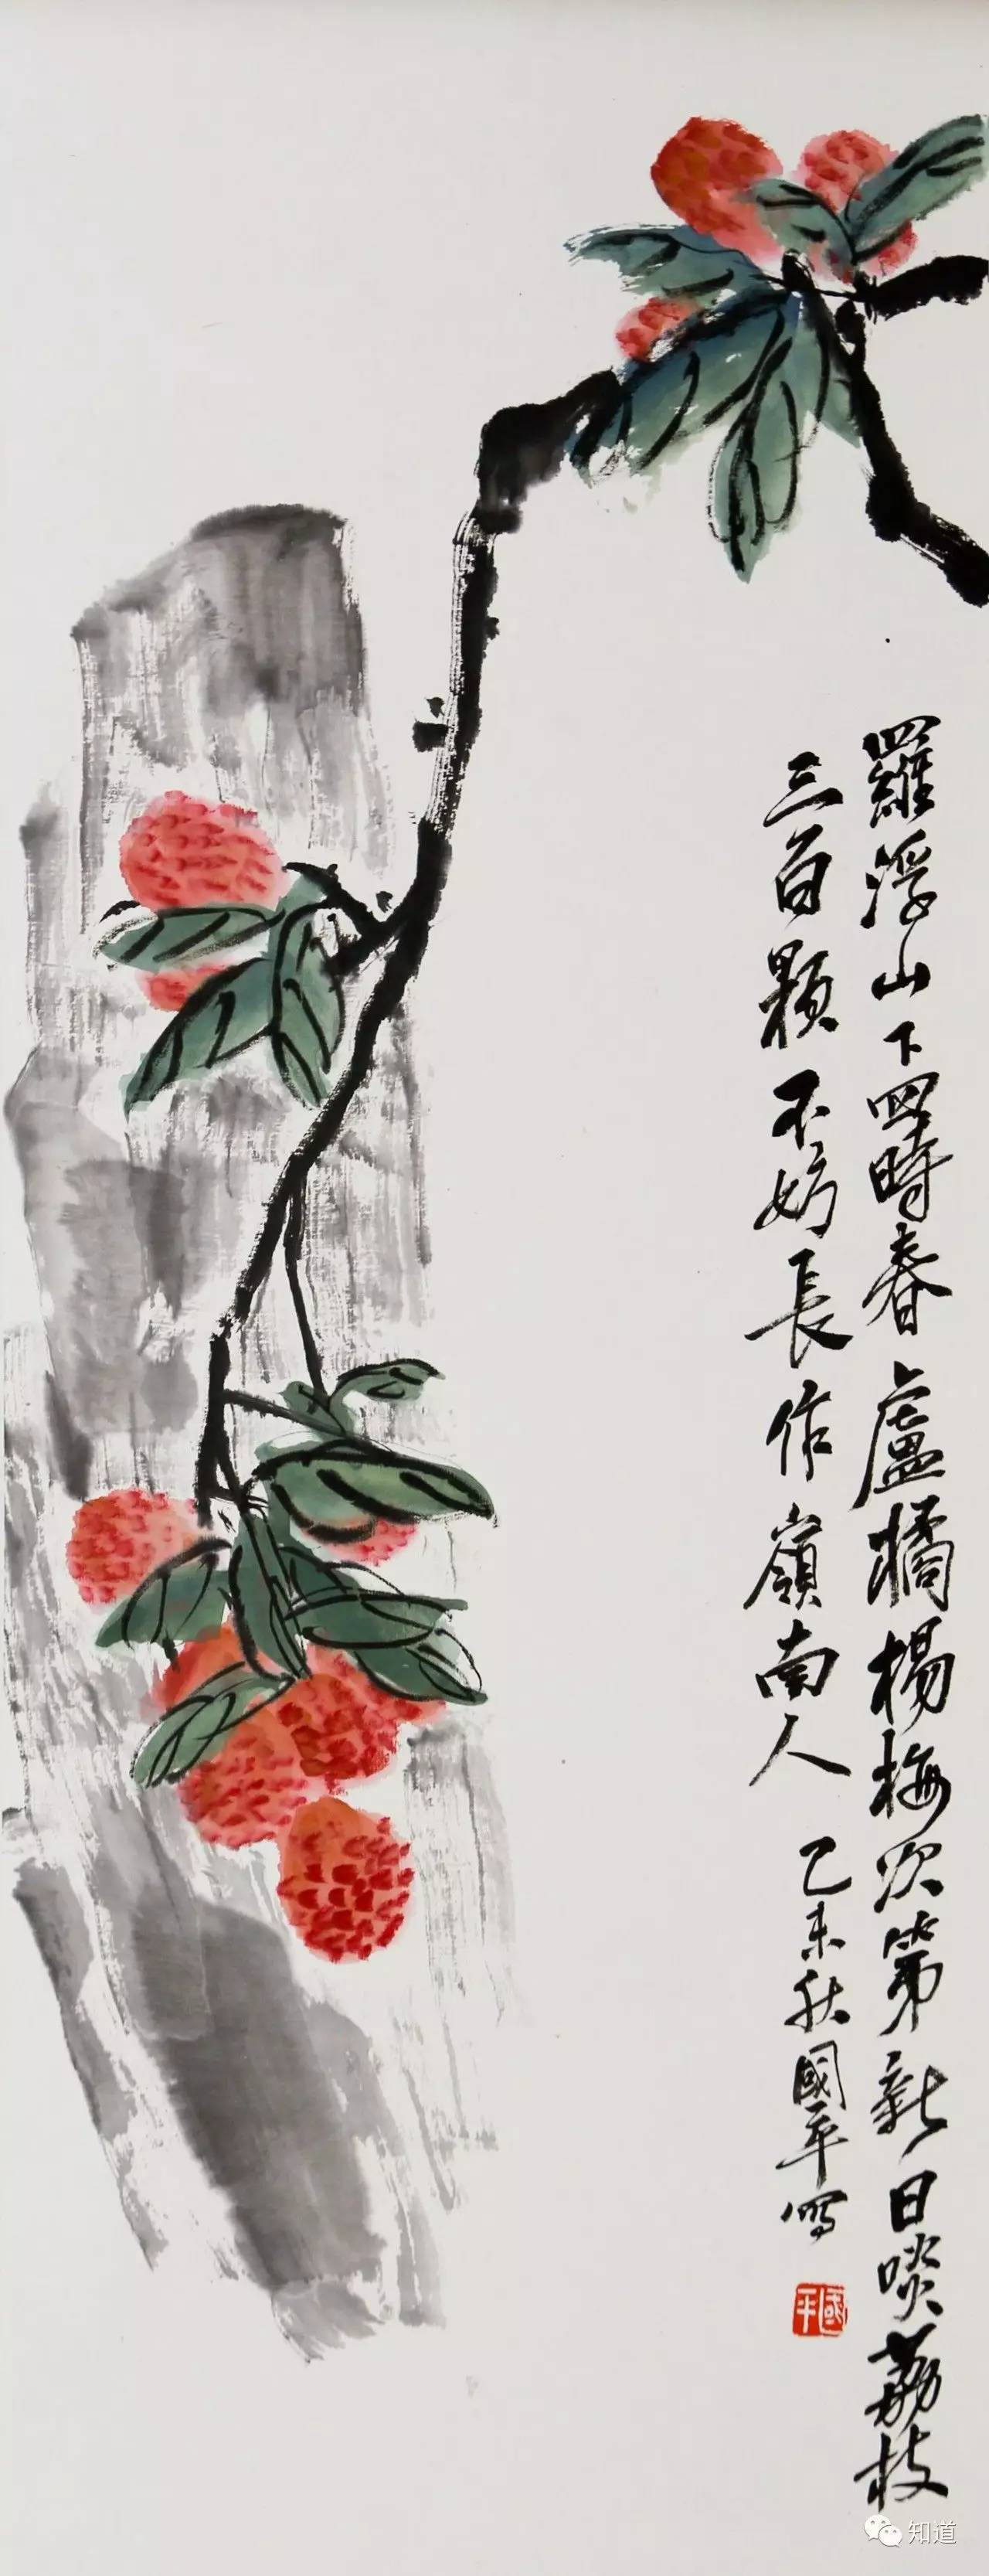 羅浮山下四時春盧橘楊梅次第新日啖荔枝
三百顆不妨長作嶺南人
乙未秋國平寫
國平
知道